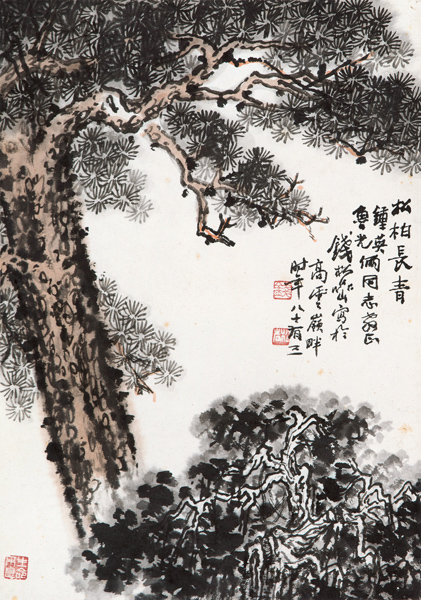 松柏長青
鍾英
魯光 倆同志教正
錢松喦寫於
高雲嶺畔
時年八十有三